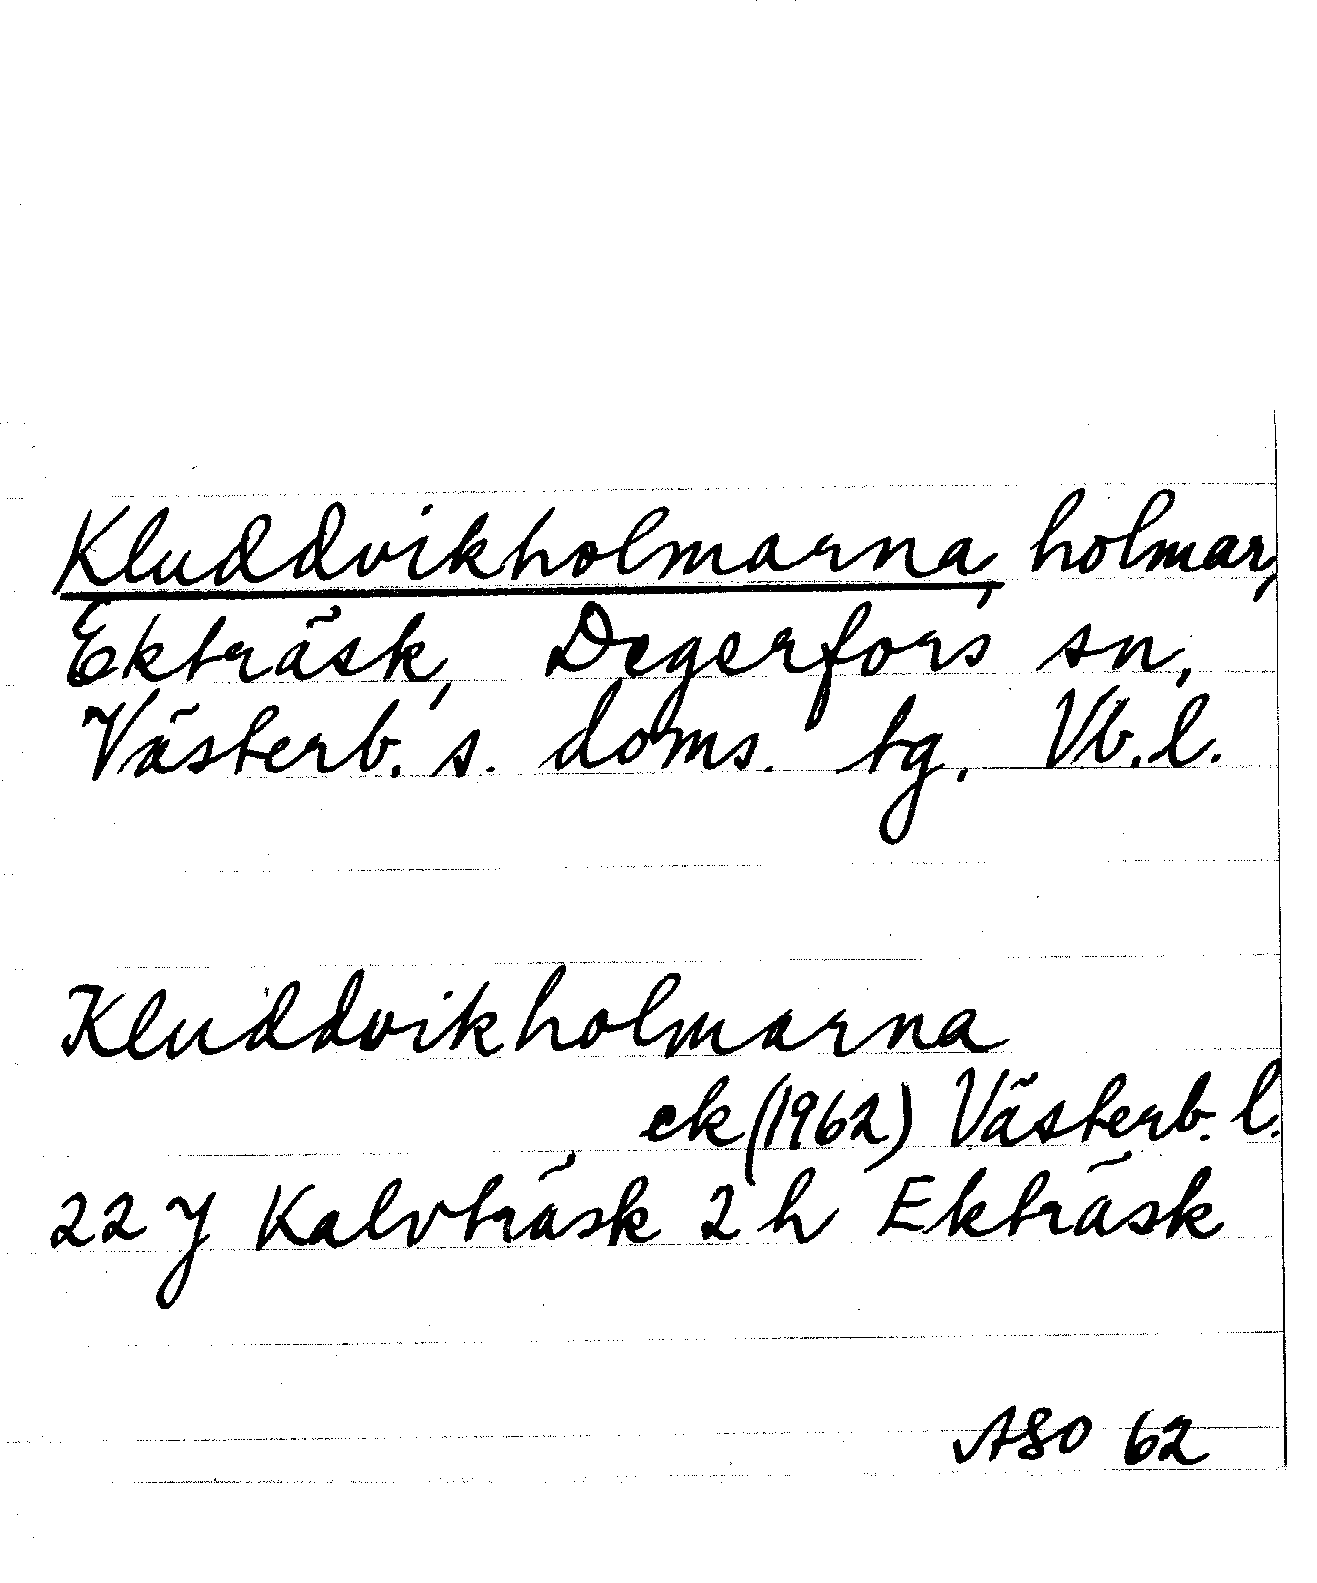 Kluddvikholmarna, holmar,
Ekträsk, Degerfors sn,
Västerb. s. doms. tg, Vb.l.
Kluddvikholmarna
ek (1962) Västerb. l.
22 J Kalvträsk 2 h Ekträsk
ASO 62